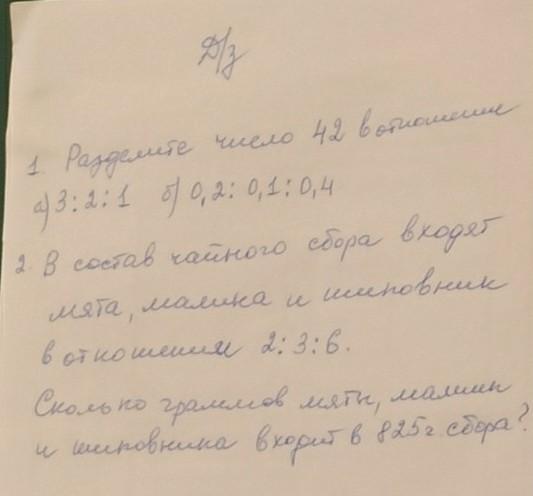 Д/з
1. Разделите число 42 в отношении
а) 3:2:1 б) 0,2:0,1:0,4
2. В состав чайного сбора входят
мята, малина и шиповник
в отношении 2:3:6.
Сколько граммов мяты, малины
и шиповника входит в 825 г. сбора?